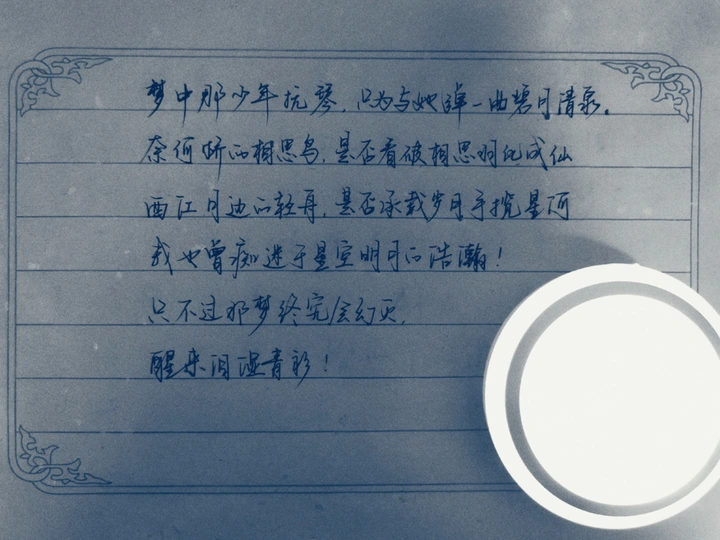 梦中那少年抚琴，只为与她弹一曲碧月清泉。
奈何桥的相思鸟，是否看破相思羽化成仙
西江月边的轻舟，是否承载岁月手揽星河
我也曾痴迷于星空明月的浩瀚！
只不过那梦终究会幻灭，
醒来泪湿青衫！